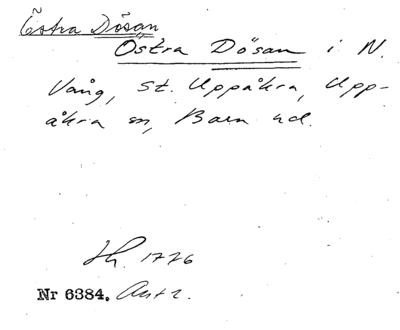 Östra Dösan
Östra Dösan i N.
Vång, St. Uppåkra, Upp-
åkra sn, Bara hd.
Sk. 1776
Nr 6384. Akt 2.